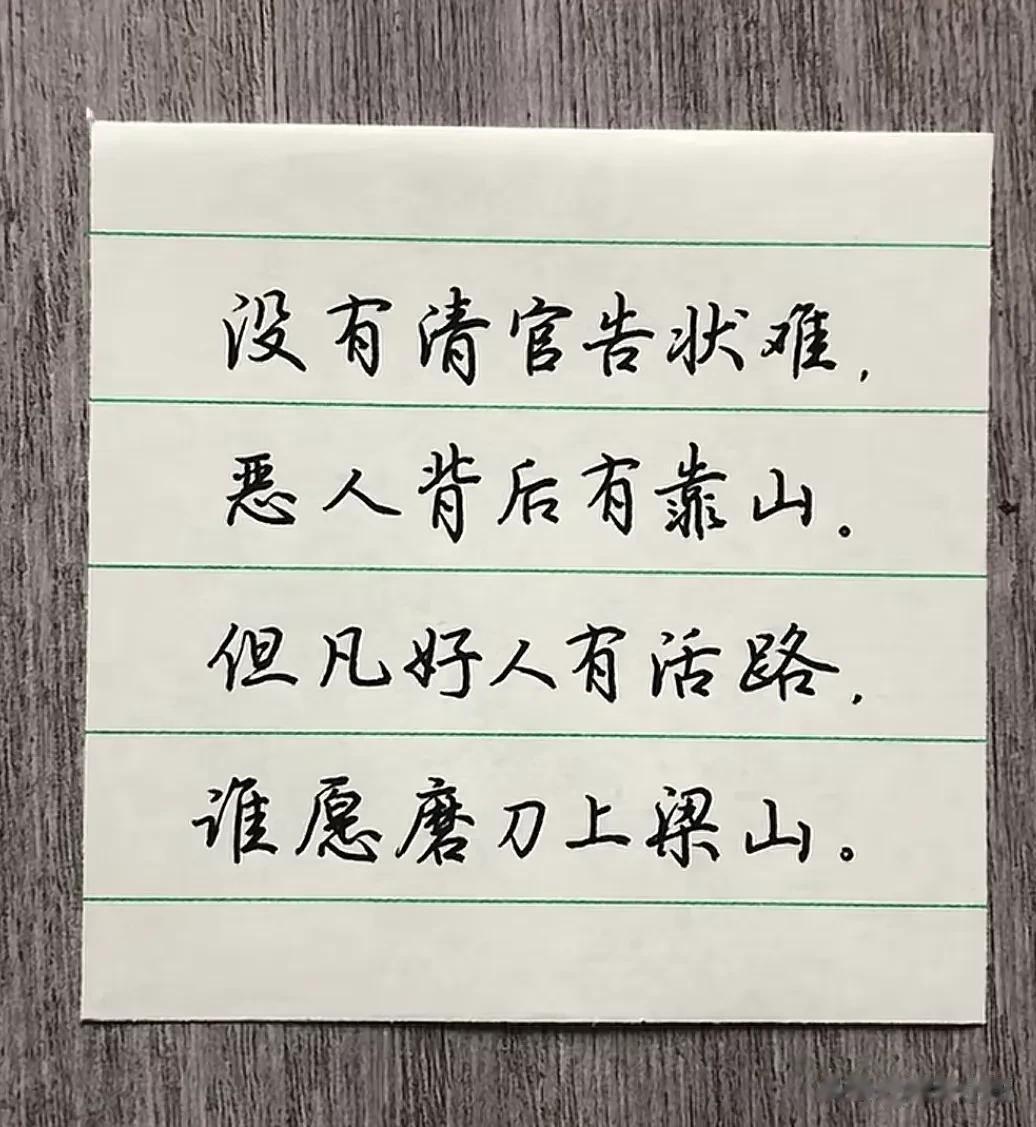 没有清官告状难，
恶人背后有靠山。
但凡好人有活路，
谁愿磨刀上梁山。